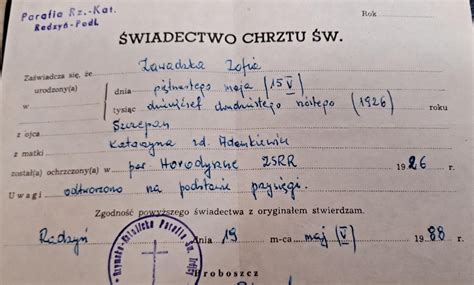 Parafia Rz.-Kat.
Radzyń-Podl.
Rok
ŚWIADECTWO CHRZTU ŚW.
Zaświadcza się, że Zawadzka Zofia
urodzony(a)
w
dnia piętnastego maja (15 V)
tysiąc dziewięćset dwudziestego szóstego (1926) roku
z ojca Szczepan
z matki Katarzyna zd. Adenkiewicz
został(a) ochrzczony(a) w par. Horodyszcze ZSRR 1926 r.
Uwagi odtworzono na podstawie przysięgi.
Zgodność powyższego świadectwa z oryginałem stwierdzam.
Radzyń dnia 19 m-ca maj (V) 1988 r.
Rzymsko-Katolicka Parafia Św. Trójcy
Proboszcz